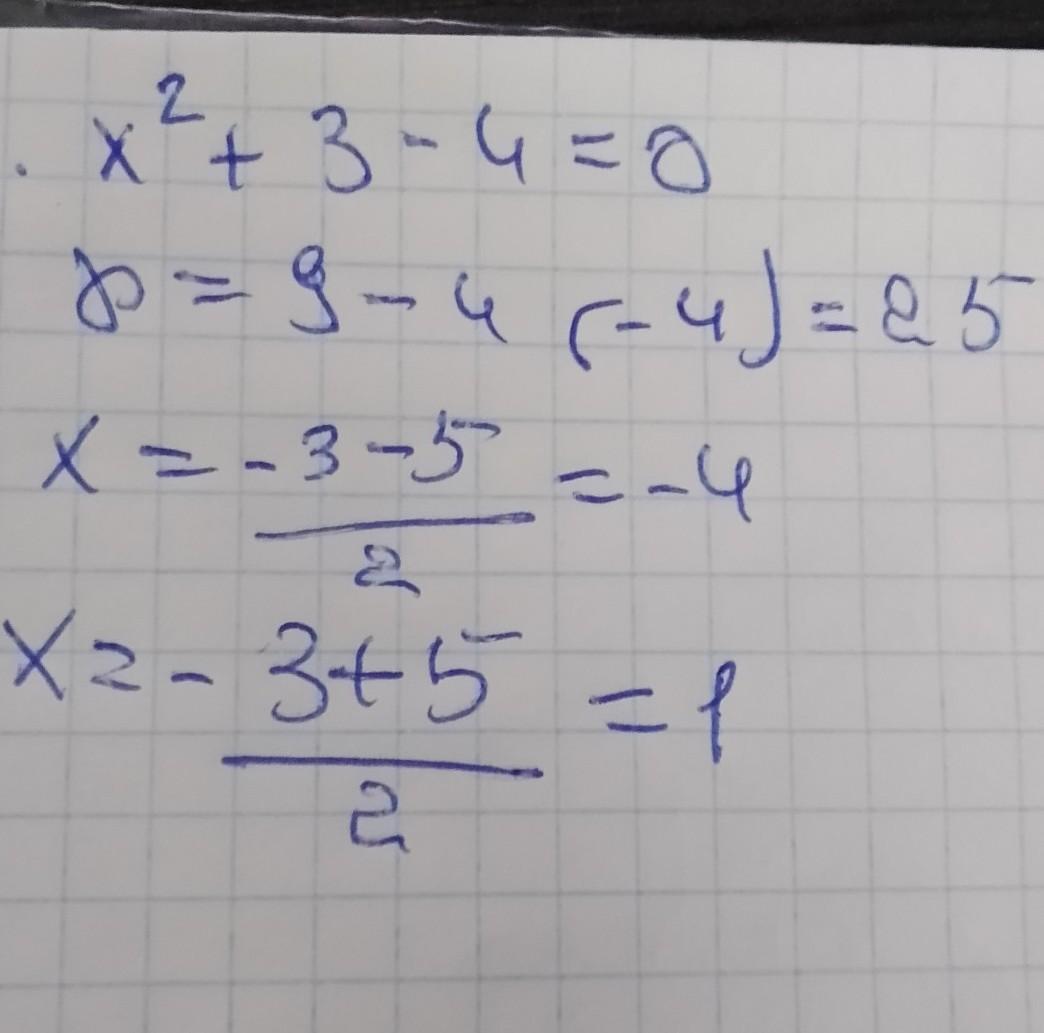 . x² + 3 - 4 = 0
D = 9 - 4 (-4) = 25
x = \frac{-3-5}{2} = -4
x = \frac{-3+5}{2} = 1